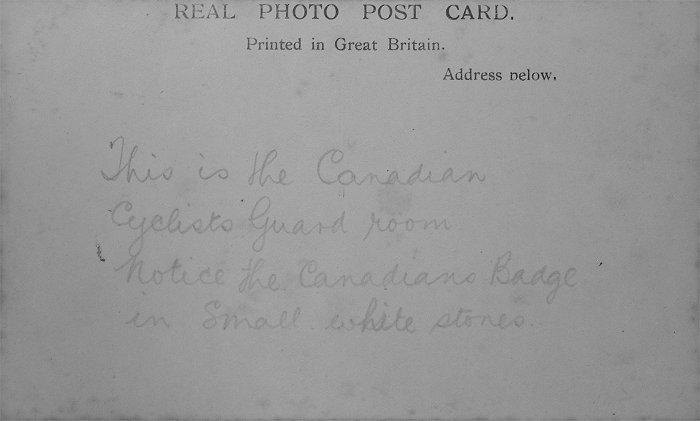 REAL PHOTO POST CARD.
Printed in Great Britain.
Address below.
This is the Canadian
Cyclists Guard room
Notice the Canadians Badge
in small white stones.